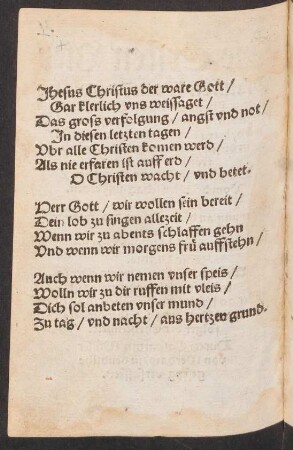 Jhesus Christus der ware Gott /
Gar klerlich vns weissaget /
Das gross verfolgung / angst vnd not /
In diesen letzten tagen /
Vbr alle Christen komen werd /
Als nie erfaren ist auff erd /
O Christen wacht / vnd betet.
Herr Gott / wir wollen sein bereit /
Dein lob zu singen allezeit /
Wenn wir zu abents schlaffen gehn
Vnd wenn wir morgens frü auffstehn /
Auch wenn wir nemen vnser speis /
Wolln wir zu dir ruffen mit vleis /
Dich sol anbeten vnser mund /
Zu tag / vnd nacht / aus hertzen grund.